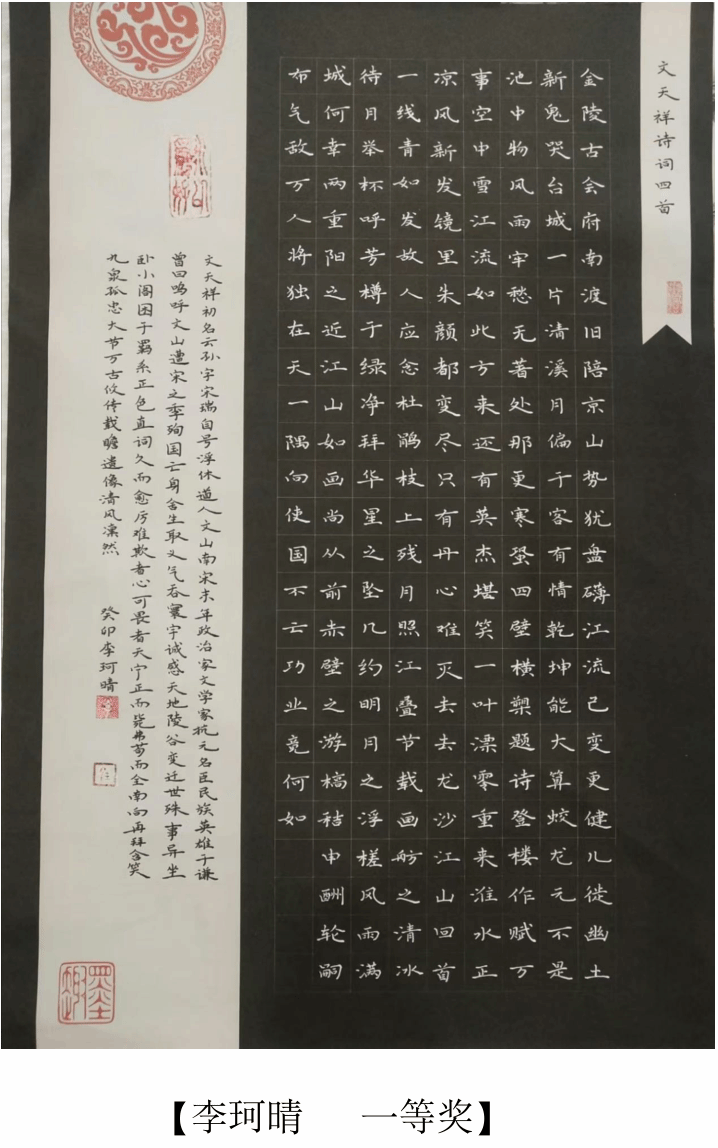 文天祥诗词四首
金陵古会府南渡旧陪京山势犹盘礴江流已变更健儿徙幽土
新鬼哭台城一片清溪月偏于客有情乾坤能大算蛟龙元不是
池中物风雨牢愁无著处那更寒蛩四壁横槊题诗登楼作赋万
事空中雪江流如此方来还有英杰堪笑一叶漂零重来淮水正
凉风新发镜里朱颜都变尽只有丹心难灭去去龙沙江山回首
一线青如发故人应念杜鹃枝上残月照江叠节载画舫之清冰
待月举杯呼芳樽于绿净拜华星之坠几约明月之浮槎风雨满
城何幸两重阳之近江山如画尚从前赤壁之游槁秸申酬轮嗣
布气敌万人将独在天一隅向使国不亡功业竟何如
文天祥初名云孙字宋瑞自号浮休道人文山南宋末年政治家文学家抗元名臣民族英雄于谦
曾曰呜呼文山遭宋之季殉国亡身舍生取义气吞寰宇诚感天地陵谷变迁世殊事异坐
卧小阁困于羁系正色直词久而愈厉难欺者心可畏者天宁正而毙弗苟而全南向再拜含笑
九泉孤忠大节万古攸传载瞻遗像清风凛然 癸卯李珂晴
【李珂晴 一等奖】